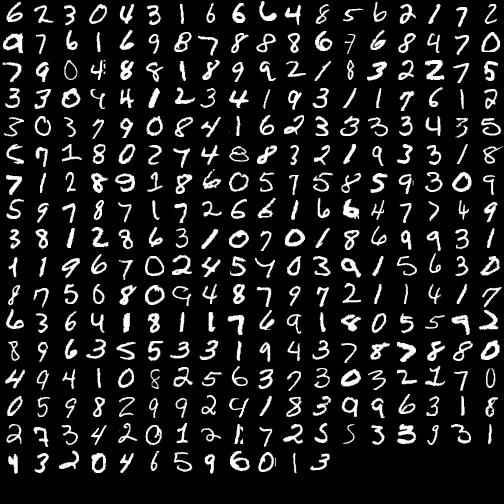 6 2 3 0 4 3 1 6 6 6 4 8 5 6 2 1 7 2
9 7 6 1 6 9 8 7 8 8 8 6 7 6 8 4 7 0
7 9 0 4 8 8 1 8 9 9 2 1 8 3 2 2 7 5
3 3 0 4 4 1 2 3 4 1 9 3 1 1 7 6 1 2
3 0 3 7 9 0 8 4 1 6 2 3 3 3 3 4 3 5
5 7 1 8 0 2 7 4 8 8 3 2 1 9 3 3 1 8
7 1 2 8 9 1 8 6 0 5 7 5 8 5 9 3 0 9
5 9 7 8 7 1 7 2 6 6 1 6 6 4 7 7 4 9
3 8 1 2 8 6 3 1 0 7 0 1 8 6 9 9 3 1
1 1 9 6 7 0 2 4 5 4 0 3 9 1 5 6 3 0
8 7 5 0 8 0 9 4 8 7 9 7 2 1 1 4 1 7
6 3 6 4 1 8 1 1 7 6 9 1 8 0 5 5 9 2
8 9 6 3 5 5 3 3 1 9 4 3 7 8 7 8 8 0
4 9 4 1 0 8 2 5 6 3 7 3 0 3 2 1 7 0
0 5 9 8 2 9 9 2 4 1 8 3 9 9 6 3 1 8
2 7 3 4 2 0 1 2 1 7 2 5 5 3 3 9 3 1
9 3 2 0 4 6 5 9 6 0 1 3